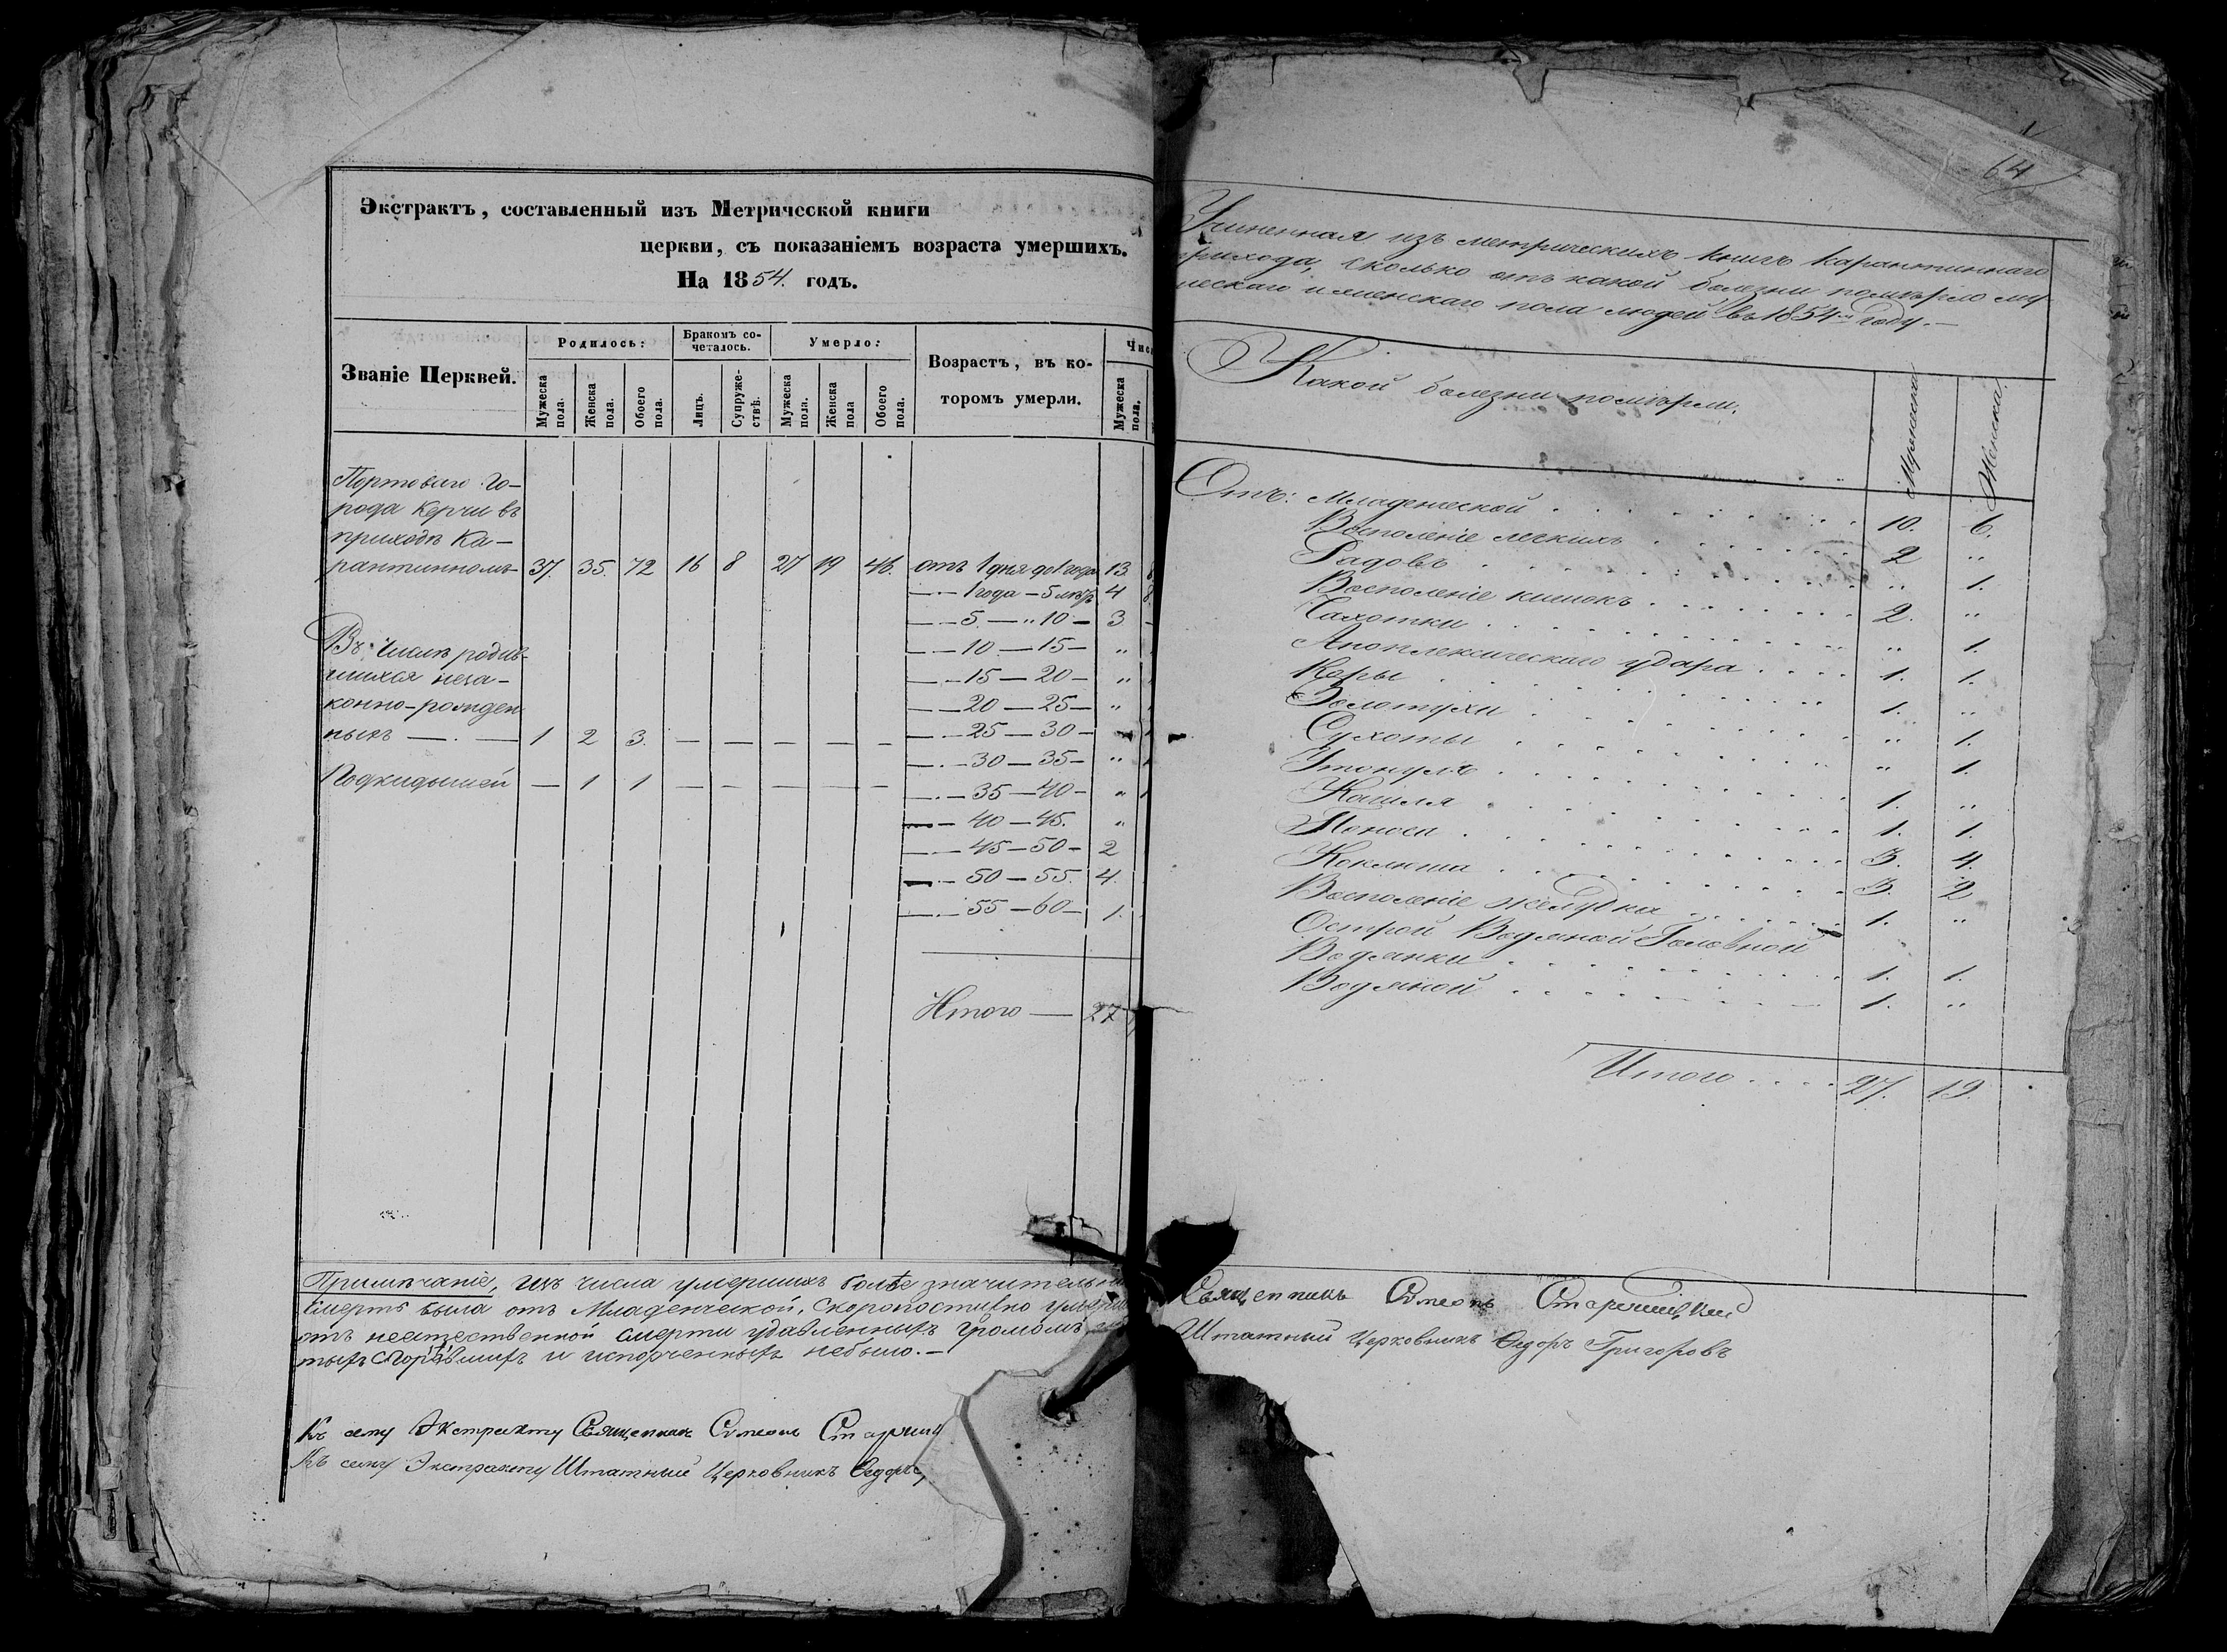 Экстрактъ, составленный изъ Метрической книги
церкви, съ показаніемъ возраста умершихъ.
На 1854. годъ.
Званіе Церквей.
Родилось:
Мужеска пола.
Женска пола.
Обоего пола.
Бракомъ со-
четалось.
Лицъ.
Супруже-
ствъ.
Умерло:
Мужеска пола.
Женска пола
Обоего пола.
Возрастъ, въ ко-
торомъ умерли.
Мужеска пола.
Портоваго го-
рода Керчи въ
приходѣ Ка-
рантинномъ 37. 35. 72 16 8 27 19 46. отъ 1 дня до 1 года 13
— 1 года — 5 лѣтъ 4
— 5. — „ 10 — 3
Въ числѣ родив-
— 10 — 15 — „
шихся неза-
— 15 — 20 — „
конно-рожден
— 20 — 25 — „
ныхъ — 1 2 3. — — — — —
— 25 — 30 —
— 30 — 35 — „
Подкидышей — 1 1 — — — — —
— 35 — 40 — „
— 40 — 45. „
— 45 — 50 — 2
— 50 — 55. 4.
— 55 — 60 — 1.
Итого — 27
Примѣчаніе, изъ числа умершихъ болѣе значительн
смерть была отъ Младенческой, скоропостижно умерш
отъ неестественной смерти удавленныхъ громомъ
сгорѣвшихъ и испорченныхъ небыло. —
Къ сему Экстракту Священникъ Симеонъ
Къ сему Экстракту Штатный Церковникъ Ѳедоръ
64
Учиненная изъ метрическихъ книгъ Карантиннаго
прихода, сколько отъ какой болезни помѣрло му
ческаго и женскаго пола людей въ 1854 м году. —
Какой болезни помѣрли.
Мужеска
Женска
Отъ: Младенческой 10. 6.
Восполеніе легкихъ 2 „
Радовъ „ 1.
Восполеніе кишокъ 2. „
Чахотки „ 1.
Апоплексическаго удара 1. 1.
Коры 1. „
Золотухи „ 1.
Сухоты „ 1.
Утонулъ 1. „
Кашля 1. 1.
Поноса 3. 4.
Коклюша 3. 2
Восполеніе желудка 1. „
Острой Водяной Головной
Водянки 1. 1.
Водяной 1. „
Итого 27. 19.
Священникъ Симеонъ
Штатный Церковникъ Ѳедоръ Григоровъ